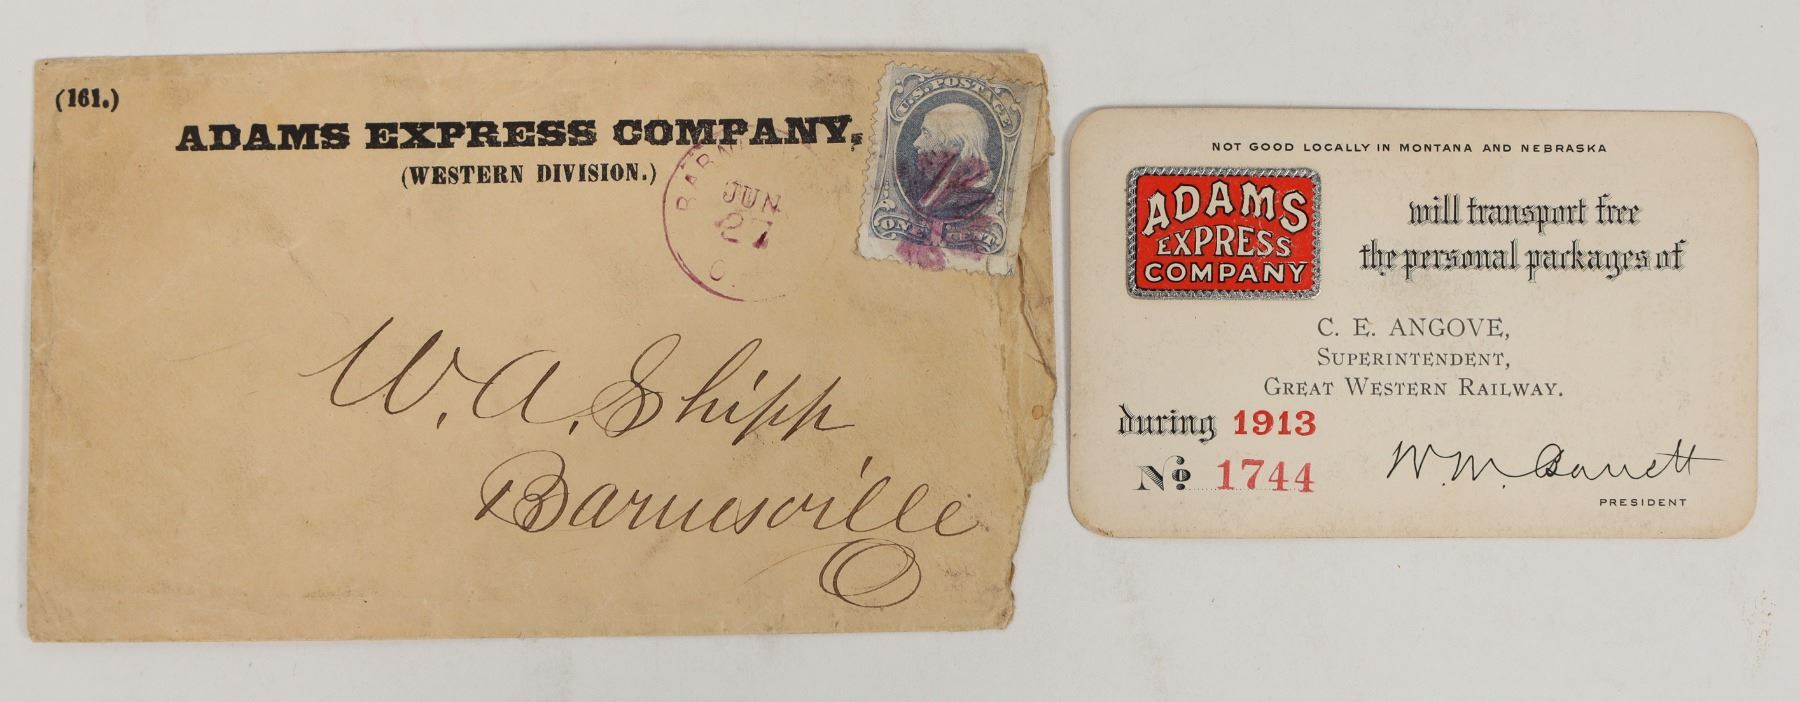 (161.)
ADAMS EXPRESS COMPANY,
(WESTERN DIVISION.)
JUN
27
O.
U.S. POSTAGE
ONE CENT
W. A. Shipp
Barnesville
O
NOT GOOD LOCALLY IN MONTANA AND NEBRASKA
ADAMS
EXPRESS
COMPANY
will transport free
the personal packages of
C. E. ANGOVE,
SUPERINTENDENT,
GREAT WESTERN RAILWAY.
during 1913
No. 1744
W. M. Barrett
PRESIDENT